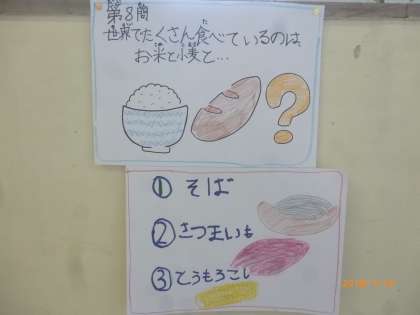 第8問
世界でたくさん食べているのは、
お米と小麦と…
① そば
② さつまいも
③ とうもろこし